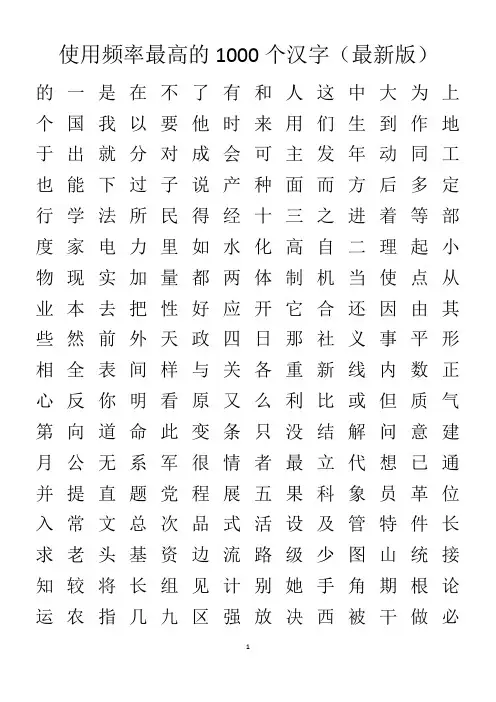 使用频率最高的 1000 个汉字（最新版）
的 一 是 在 不 了 有 和 人 这 中 大 为 上
个 国 我 以 要 他 时 来 用 们 生 到 作 地
于 出 就 分 对 成 会 可 主 发 年 动 同 工
也 能 下 过 子 说 产 种 面 而 方 后 多 定
行 学 法 所 民 得 经 十 三 之 进 着 等 部
度 家 电 力 里 如 水 化 高 自 二 理 起 小
物 现 实 加 量 都 两 体 制 机 当 使 点 从
业 本 去 把 性 好 应 开 它 合 还 因 由 其
些 然 前 外 天 政 四 日 那 社 义 事 平 形
相 全 表 间 样 与 关 各 重 新 线 内 数 正
心 反 你 明 看 原 又 么 利 比 或 但 质 气
第 向 道 命 此 变 条 只 没 结 解 问 意 建
月 公 无 系 军 很 情 者 最 立 代 想 已 通
并 提 直 题 党 程 展 五 果 科 象 员 革 位
入 常 文 总 次 品 式 活 设 及 管 特 件 长
求 老 头 基 资 边 流 路 级 少 图 山 统 接
知 较 将 长 组 见 计 别 她 手 角 期 根 论
运 农 指 几 九 区 强 放 决 西 被 干 做 必
1